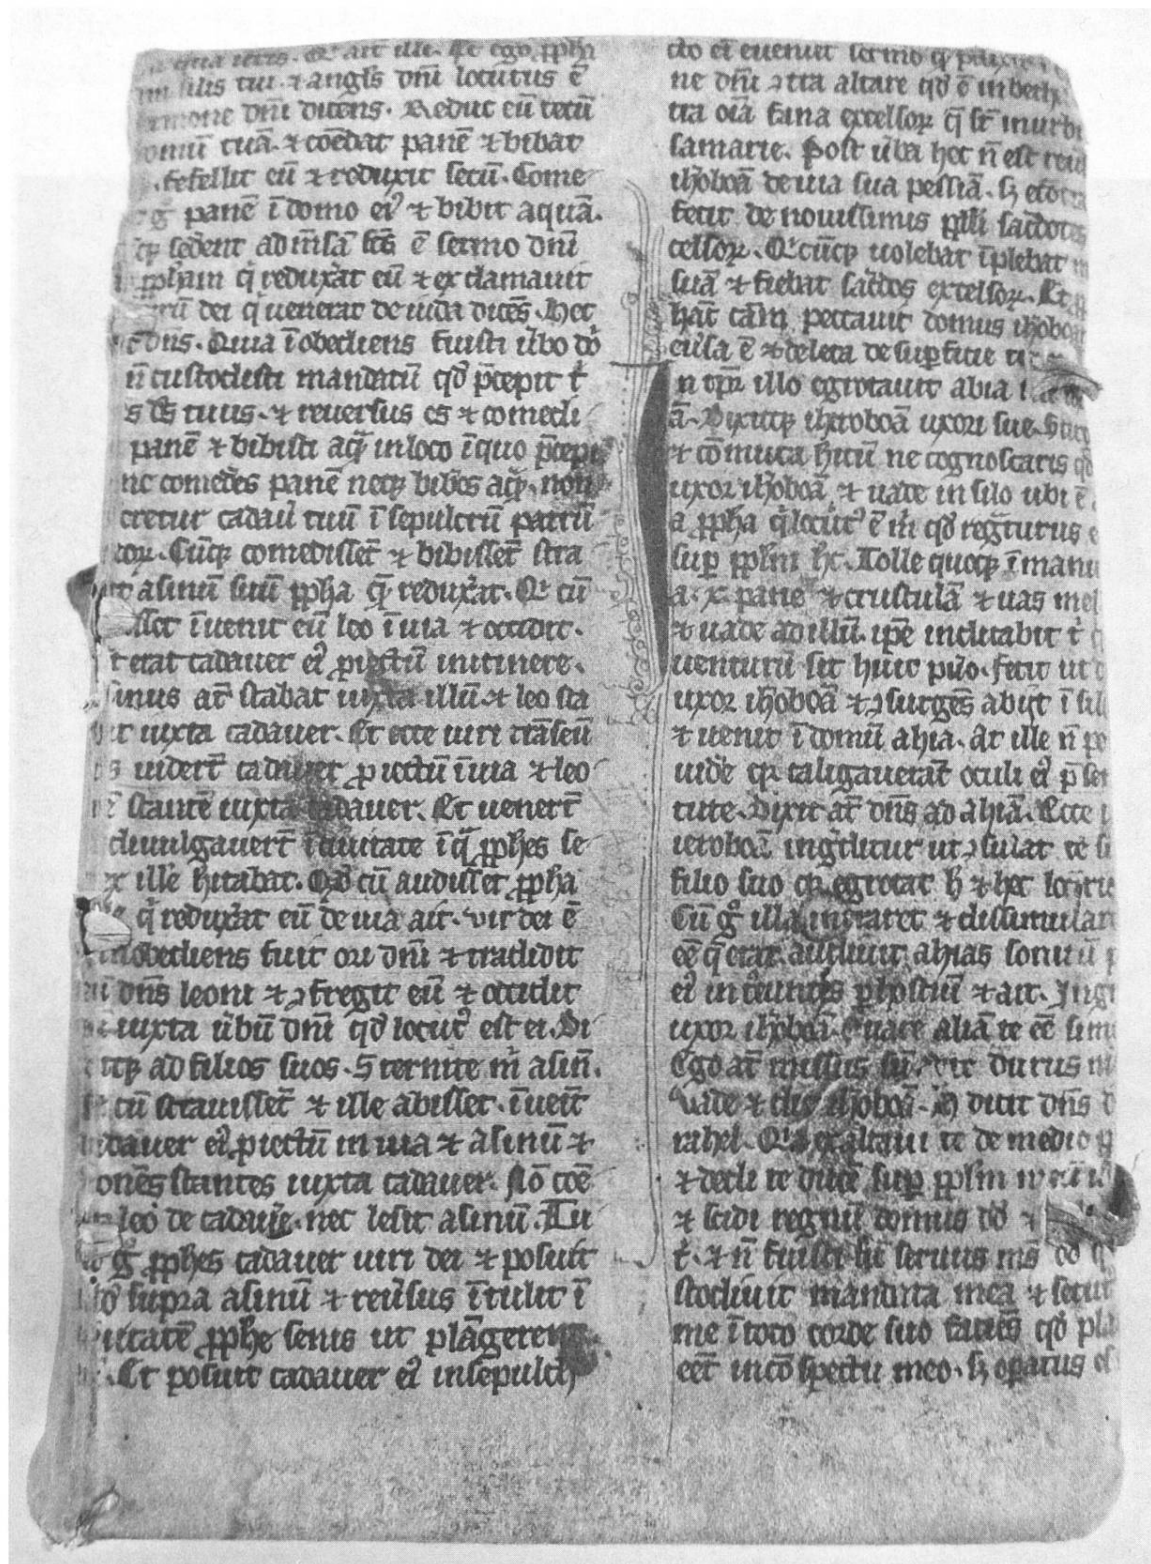 Et ego ꝓph̅a
silis tui · ⁊ angl̅s dn̅i locutus ē
mone dn̅i dicens · Reduc eū tecū
omū tuā · ⁊ cōedat panē ⁊ bibat
· fefellit eū ⁊ reduxit secū · Come
g̊ panē ī domo eiꝰ ⁊ bibit aquā ·
sederēt ad m̅sā fc̅s ē sermo dn̅i
ꝓph̅am q̇ redux̅at eū ⁊ exclamauit
rū dei q̇ uenerat de iuda dicēs · Hec
dn̅s · Quia īobediens fuisti ůbo dn̅i
n̅ custodisti mandatū qd̅ p̅cepit ṫ
s ds̅ tuus · ⁊ reuersus es ⁊ comedi
panē ⁊ bibisti aq̅ in loco ī quo p̅cepi
ne comed̅es panē neqꝫ bib̅es aq̅ · non
eretur cadaů tuū ī sepulcrū patrū
eoꝝ · Cūqꝫ comedisset̅ ⁊ bibisset̅
asinū suū ꝓph̅a q̅ redux̅at · Qi cū
sset īuenit eū leo ī uia ⁊ occidit ·
t erat cadauer eiꝰ ꝓiectū in itinere ·
sinus at̅ stabat iuxta illū ⁊ leo sta
t iuxta cadauer · Et ecce uiri trāseū
s uidert̅ cadauer ꝓiectū ī uia ⁊ leo
ē stantē iuxta cadauer · Et uenert̅
diuulgauert̅ ī ciuitate ī q̅ ꝓph̅es se
x ille h̅itabat · Qd̅ cū audisset ꝓph̅a
q̇ redux̅at eū de uia ait · uir dei ē
inobediens fuit ori dn̅i ⁊ tradidit
ū dn̅s leoni ⁊ ꝯfregit eū ⁊ occidit
iuxta ůbū dn̅i qd̅ locutꝰ est ei · Di
itqꝫ ad filios suos · Sternite m̅ asinū ·
cū strauisset̅ ⁊ ille abisset · īuenit̅
dauer eiꝰ ꝓiectū in uia ⁊ asinū ⁊
onēs stantes iuxta cadauer · Nō cōe
leo de cadauere · nec lesit asinū · Tu
g̊ ꝓph̅es cadauer uiri dei ⁊ posuit
supra asinū ⁊ reůsus ī tulit ī
iutatē ꝓph̅e senis ut plāgeret
· Et posuit cadauer eiꝰ in sepulch
cto ei̅ eueniet sermo
ne dn̅i ꝯtra altare qd̅ ē in beth
tra oīa fana excelsoꝝ q̅ st̅ in urbi
samarie · Post ůba hec n̅ est
ih̅oboā de uia sua pessiā · sꝫ
fecit de nouissimis ppl̅i sac̅dotes
celsoꝝ · Qicūqꝫ uolebat īplebat
suā ⁊ fiebat sac̅dos excelsoꝝ · Et
hāc cām peccauit domus ih̅oboā
euersa ē ⁊ deleta de sup̅ficie
n tp̅r illo egrotauit abia
ā · Dixitqꝫ iheroboā uxori sue ·
⁊ cōmuta h̅itū ne cognoscaris
uxor ih̅oboā ⁊ uade in silo ubi ē
a ꝓph̅a q̇ locutꝰ ē m̅ qd̅ reg̅turus
sup̅ ppl̅m hc̅ · Tolle quoqꝫ ī manu
a · x · panē ⁊ crustulā ⁊ uas mel
⁊ uade ad illū · ip̅e indicabit ṫ
uenturū sit huic půo · fecit ut
uxor ih̅oboā ⁊ ꝯsurgēs abiit ī sil
⁊ uenit ī domū ahia · At ille n̅ po
uide̅ qꝛ caligauerāt oculi eiꝰ p̅ se
tute · Dixit at̅ dn̅s ad ahiā · Ecce
ieroboā ing̅ditur ut ꝯsulat te
filio suo qꝛ egrotat h̅ ⁊ hec
Cū g̊ illa intraret ⁊ dissimular
eē q̅ erat · audiuit ahias sonitū
eiꝰ introeuntis p̅ hostiū ⁊ ait · Ingr
uxor ih̅oboā · quare aliā te eē simu
Ego at̅ missus sū dirus
Uade ⁊ dic ih̅oboā · H̅ dicit dn̅s
rahel · Qia exaltaui te de medio
⁊ dedi te ducē sup̅ ppl̅m
⁊ scidi regnū domus dd̅
ṫ · ⁊ n̅ fuisti sic̅ seruus ms̅ dd̅
stodiuit mandata mea ⁊ secut
me ī toto corde suo faciēs qd̅
eēt in cōspectu meo · sꝫ opatus es